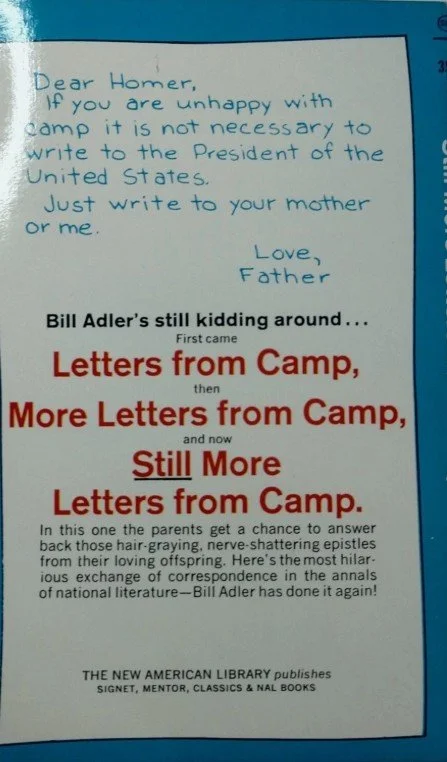 Dear Homer,
If you are unhappy with
camp it is not necessary to
write to the President of the
United States.
Just write to your mother
or me.
Love,
Father
Bill Adler's still kidding around...
First came
Letters from Camp,
then
More Letters from Camp,
and now
Still More
Letters from Camp.
In this one the parents get a chance to answer
back those hair-graying, nerve-shattering epistles
from their loving offspring. Here's the most hilar-
ious exchange of correspondence in the annals
of national literature—Bill Adler has done it again!
THE NEW AMERICAN LIBRARY publishes
SIGNET, MENTOR, CLASSICS & NAL BOOKS